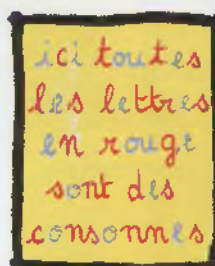 ici toutes
les lettres
en rouge
sont des
consonnes